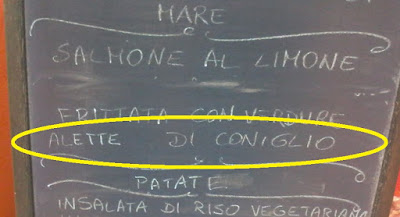 MARE
SALMONE AL LIMONE
FRITTATA CON VERDURE
ALETTE DI CONIGLIO
PATATE
INSALATA DI RISO VEGETARIANA